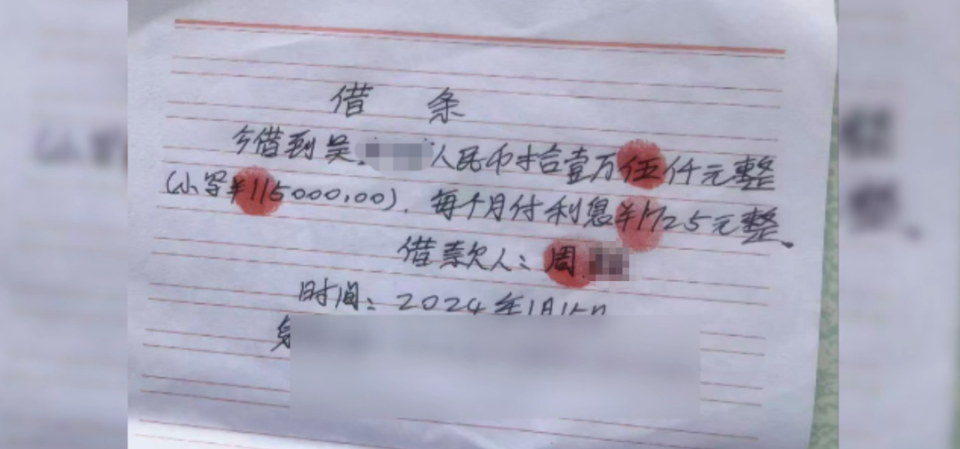 借 条
今借到吴 人民币拾壹万伍仟元整
(小写¥115000.00)，每个月付利息¥1725元整。
借款人：周
时间：2024年1月15日
身